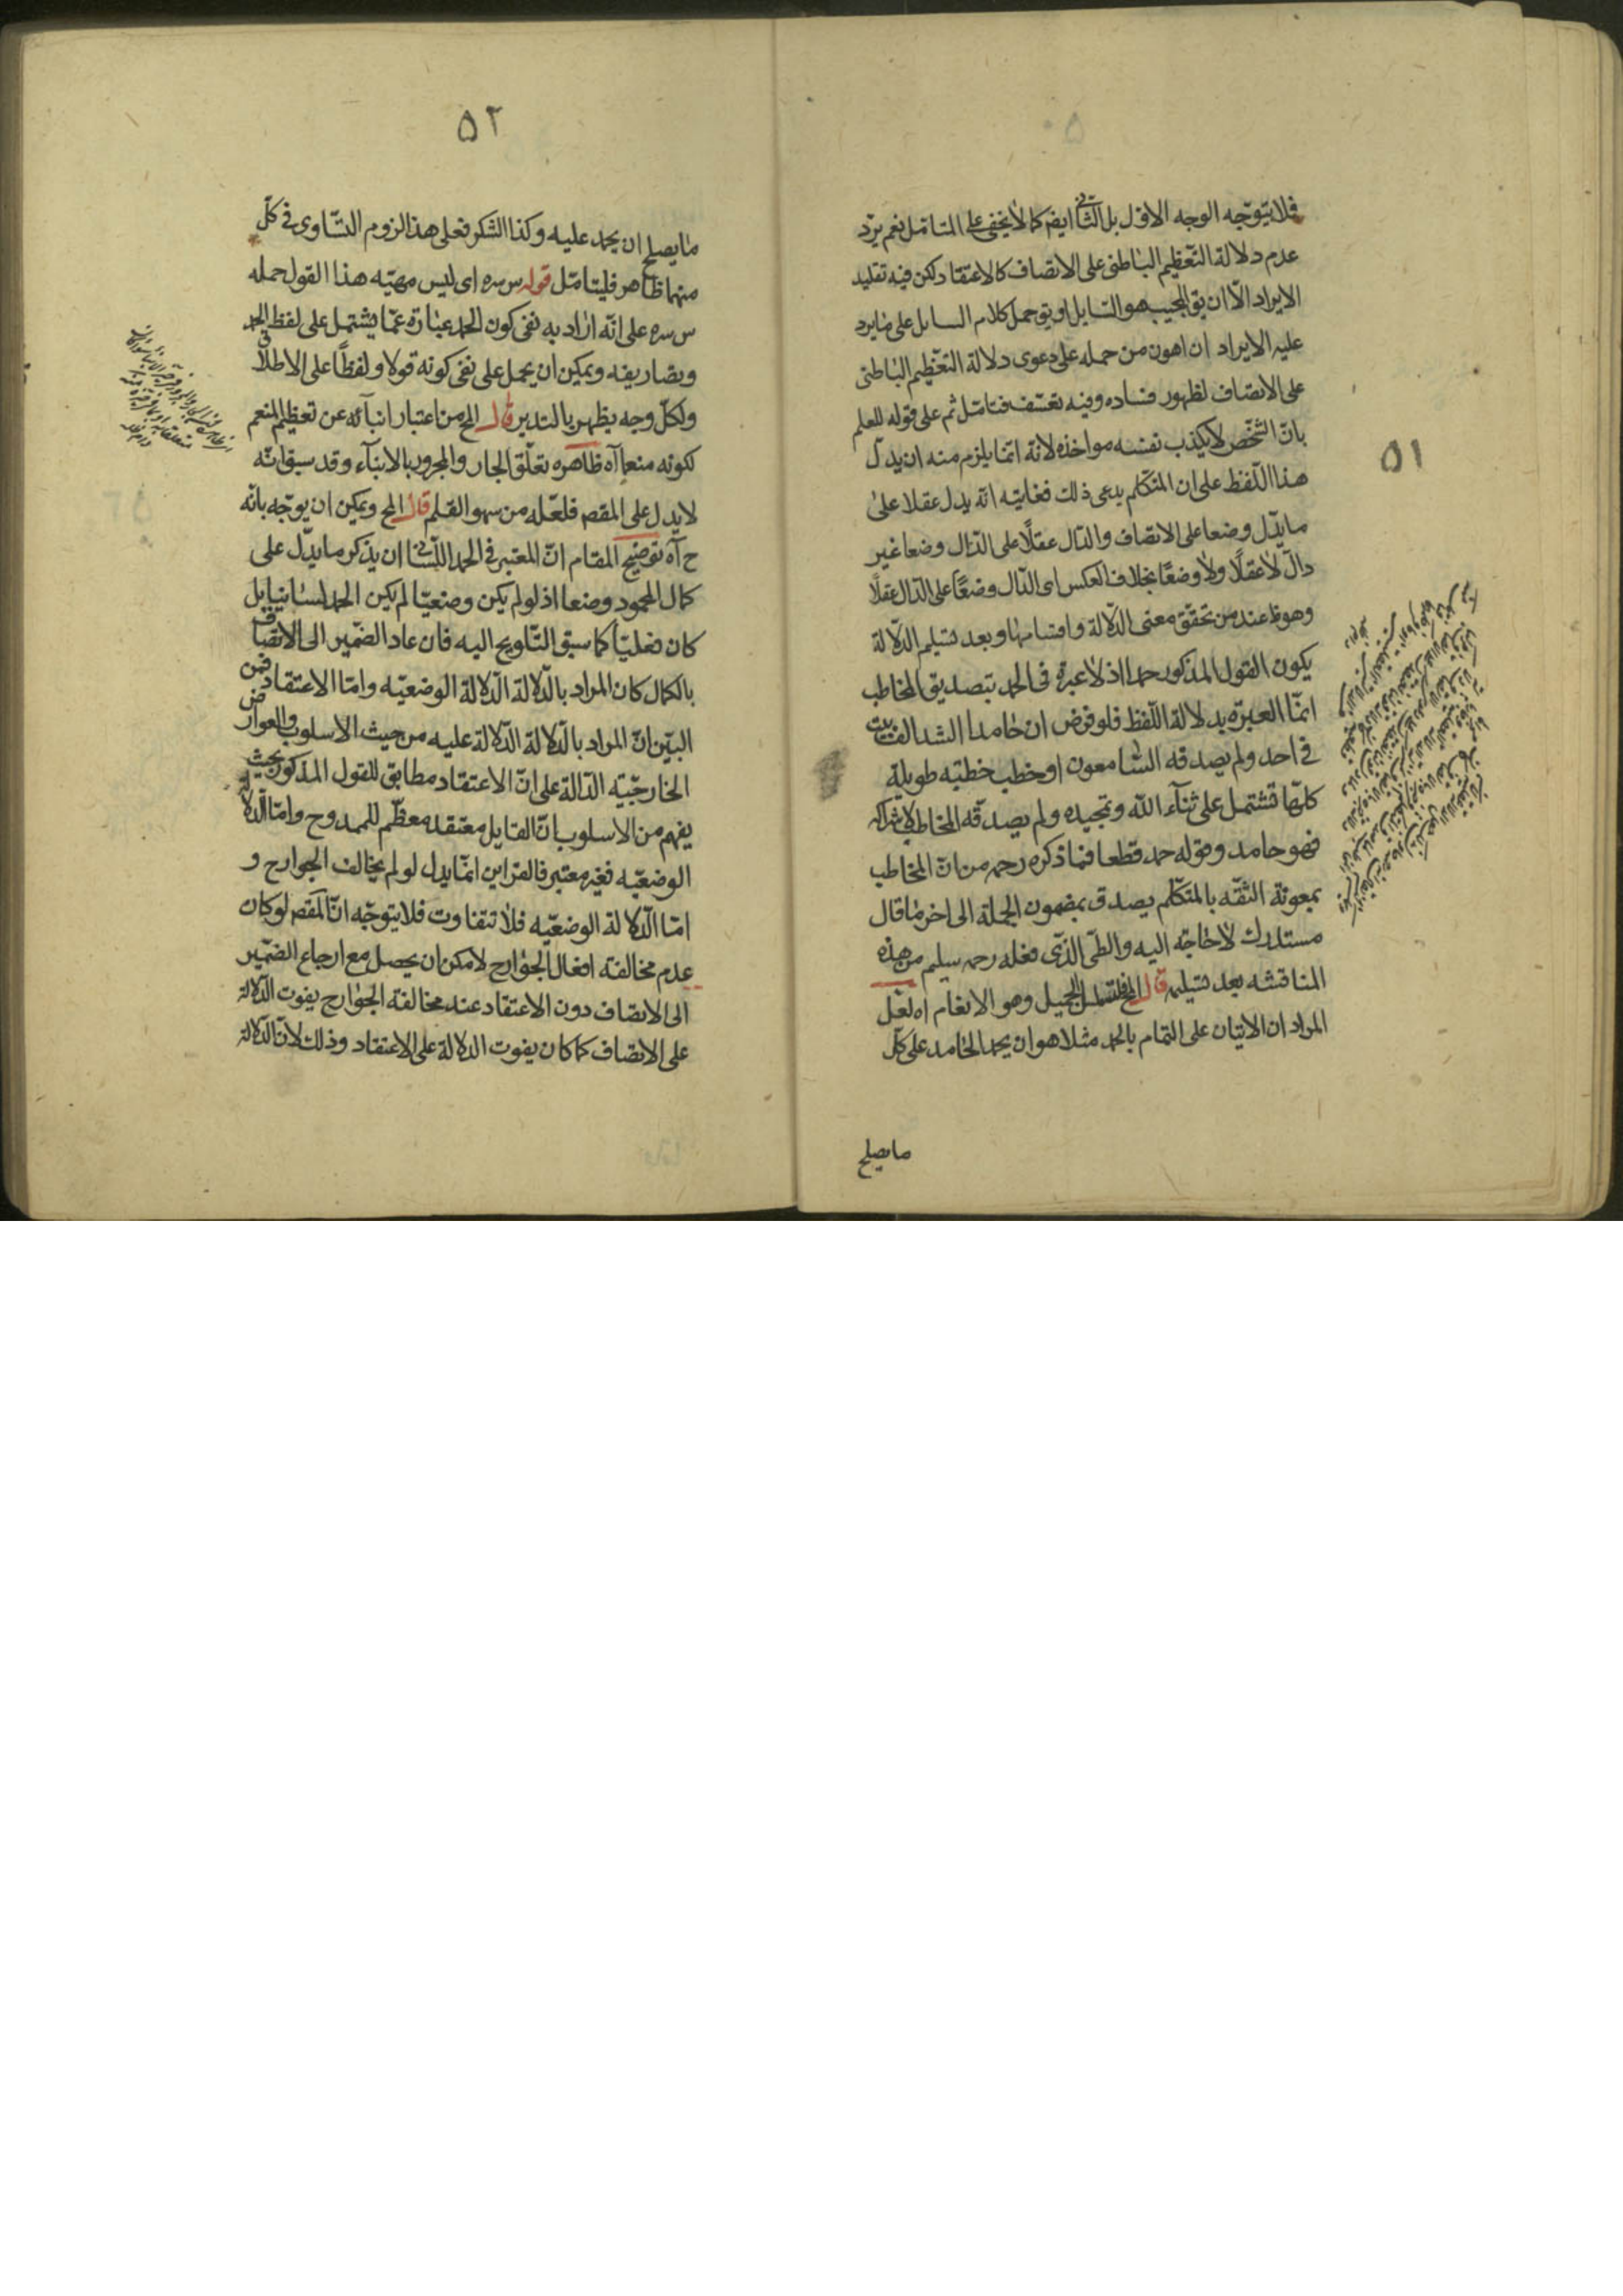 ٥١
فلا يتوجّه الوجه الاوّل بل الثانى ايضم كما لا يخفى على المتامّل نعم يرد
عدم دلالة التّعظيم الباطنى على الاتصاف كالاعتقاد لكن فيه تقليد
الايراد الّا ان يق المجيب هو السّايل او يق حمل كلام السايل على ما يرد
عليه الايراد ان اهون من حمله على دعوى دلالة التعظيم الباطنى
على الاتصاف لظهور فساده وفيه تعسّف فتامّل ثم على قوله للعلم
بانّ الشّخص لا يكذب نفسه مواخذه لانّه انّما يلزم منه ان يدلّ
هذا اللّفظ على ان المتكلّم يدعى ذلك فغايته انّه يدل عقلا على
ما يدّل وضعا على الاتصاف والدّال عقلًا على الدّال وضعا غير
دالّ لا عقلًا ولا وضعًا بخلاف العكس اى الدّال وضعًا على الدّال عقلًا
وهو ظ عند من تحقق معنى الدّلالة واقسامها وبعد تسليم الدّلالة
يكون القول المذكور حمدا اذ لا عبرة فى الحمد بتصديق المخاطب
انّما العبرّة بدلالة اللّفظ فلو فرض ان حامدا انشد الف بيت
فى احد ولم يصدقه السّامعون او خطب خطبه طويلة
كلّها تشتمل على ثنآء اللّه وتمجيده ولم يصدقه المخاطب لاشراكه
فهو حامد وقوله حمد قطعا فما ذكره رحمه من انّ المخاطب
بمعونة الثقّه بالمتكلّم يصدق بمضمون الجملة الى اخر ما قال
مستدرك لا حاجة اليه والطّى الذّى فعله رحمه سليم من هذه
المناقشه بعد تسليمه قال المح فلتشمل الجميل وهو الانعام اه لعّل
المراد ان الاتيان على التمام بالحمد مثلا هو ان يحمد الحامد على كلّ
ما يصلح
٥٢
ما يصلح ان يحمد عليه وكذا الشكر فعلى هذا لزوم التّساوى فى كلّ
منهما ظاهر فليتامّل قوله س سره اى ليس مهيّه هذا القول حمله
س سره على انّه اراد به نفى كون الحمد عبارة عمّا يشتمل على لفظ الحمد
وتصاريفه ويمكن ان يحمل على نفى كونه قولا ولفظًا على الاطلاق
ولكلّ وجه يظهر بالتدبر قال المح من اعتبار انبآئه عن تعظيم المنعم
لكونه منعما آه ظاهره تعلّق الجار والمجرور بالانبآء وقد سبق انّه
لا يدل على المقصم فلعّله من سهو القلم قال المح ويمكن ان يوجّه بانّه
ح آه توضيح المقام انّ المعتبر فى الحمد اللّسانى ان يذكر ما يدّل على
كمال المحمود وضعا اذ لو لم يكن وضعيّا لم يكن الحمد لسانيا بل
كان فعليّا كما سبق التّلويح اليه فان عاد الضمّير الى الاتصاف
بالكمال كان المراد بالدّلالة الدّلالة الوضعيّه وامّا الاعتقاد فمن
البيّن انّ المراد بالدّلالة الدّلالة عليه من حيث الاسلوب والعوارض
الخارجّيّه الدّالة على انّ الاعتقاد مطابق للقول المذكور بحيث
يفهم من الاسلوب انّ القايل معتقد معظّم للممدوح وامّا الدّلالة
الوضعيّه فغير معتبر فالقراين انمّا يدل لو لم يخالف الجوارح و
امّا الدّلالة الوضعيّه فلا تتفاوت فلا يتوجّه انّ المقصم لو كان
عدم مخالفته افعال الجوارح لامكن ان يحصل مع ارجاع الضمّير
الى الاتصاف دون الاعتقاد عند مخالفة الجوارح يفوت الدّلالة
على الاتصاف كما كان يفوت الدلالة على الاعتقاد وذلك لانّ الدّلالة